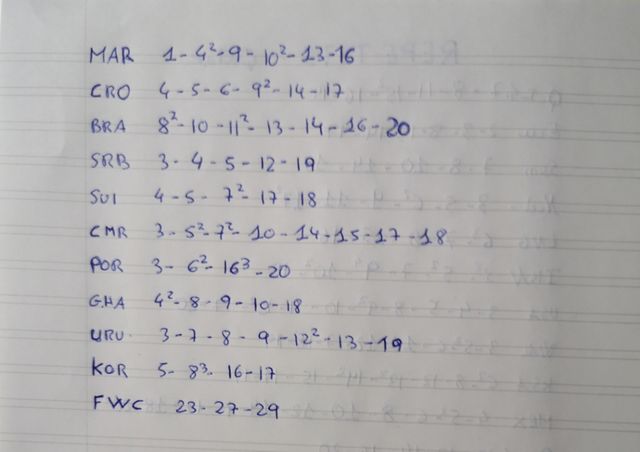 MAR 1 - 4² - 9 - 10² - 13 - 16
CRO 4 - 5 - 6 - 9² - 14 - 17
BRA 8² - 10 - 11² - 13 - 14 - 16 - 20
SRB 3 - 4 - 5 - 12 - 19
SUI 4 - 5 - 7² - 17 - 18
CMR 3 - 5² - 7² - 10 - 14 - 15 - 17 - 18
POR 3 - 6² - 16³ - 20
GHA 4² - 8 - 9 - 10 - 18
URU 3 - 7 - 8 - 9 - 12² - 13 - 19
KOR 5 - 8³ - 16 - 17
FWC 23 - 27 - 29